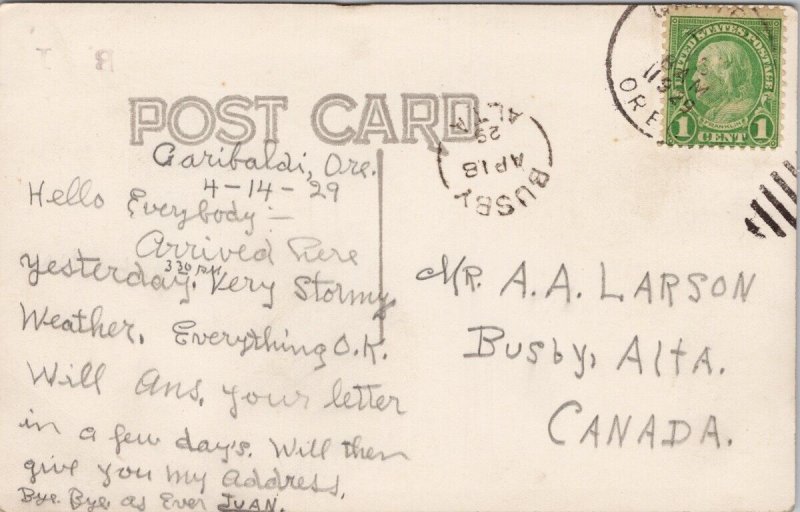 POST CARD
Garibaldi, Ore.
4-14-29
Hello Everybody:—
Arrived here
yesterday, 3 30 PM. Very Stormy
Weather. Everything O.K.
Will Ans. your letter
in a few day's. Will then
give you my address.
Bye. Bye. as Ever JUAN.
BUSBY
AP 18
29
ALTA
ORE
1929
UNITED STATES POSTAGE
FRANKLIN
1 CENT 1
MR. A. A. LARSON
Busby, Alta.
CANADA.